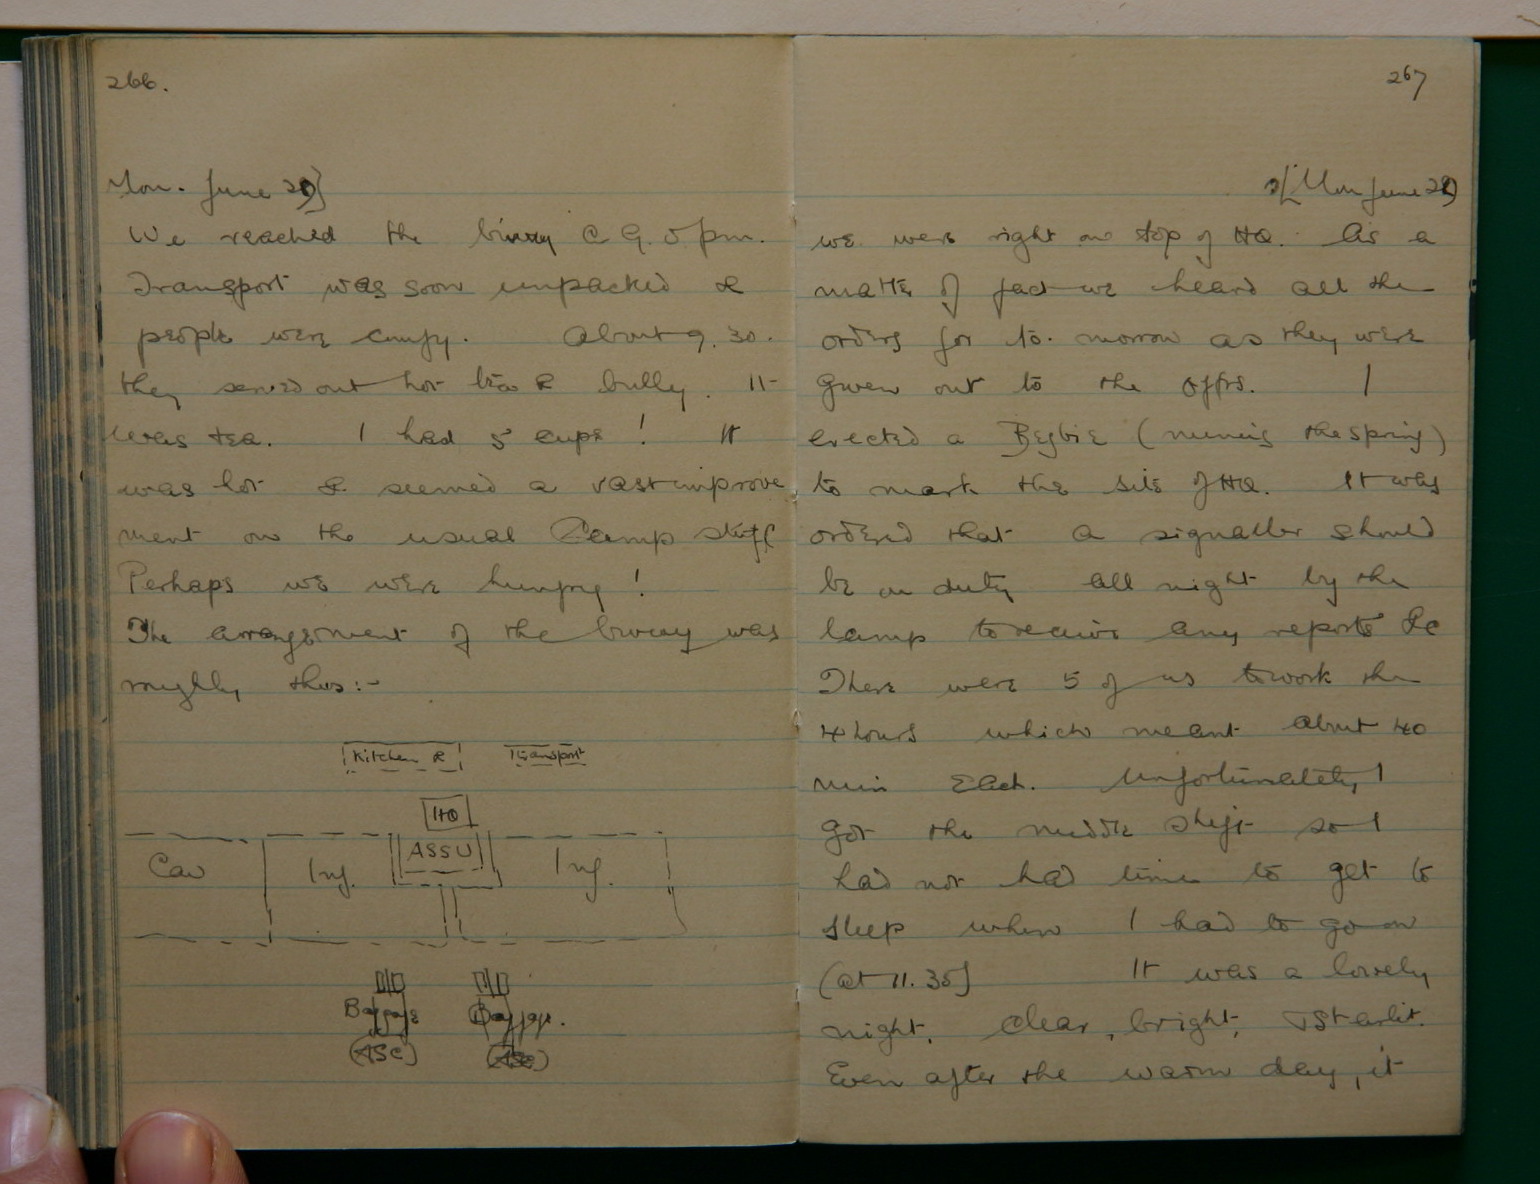 266.
Mon. June 29}
We reached the bivvay C 9.5 pm.
Transport was soon unpacked &
people were comfy. About 9.30.
they served out hot tea & bully. It
was tea. I had 5 cups! It
was hot & seemed a vast improve
ment on the usual Camp stuff
Perhaps we were hungry!
The arrangement of the bivvay was
roughly thus:-
Kitchen R Transport
HQ
ASSU
Cav Inf. Inf.
Baggage Baggage.
(ASC) (ASC)
267
{Mon June 29
we were right on top of HQ. As a
matter of fact we heard all the
orders for to-morrow as they were
given out to the offrs. I
erected a Begbie (minus the spring)
to mark the site of HQ. It was
ordered that a signaller should
be on duty all night by the
lamp to receive any reports &c
There were 5 of us to work the
4 hours which meant about 40
min each. Unfortunately, I
got the middle shift so I
had not had time to get to
sleep when I had to go on
(at 11.35) It was a lovely
night, clear, bright, starlit.
Even after the warm day, it